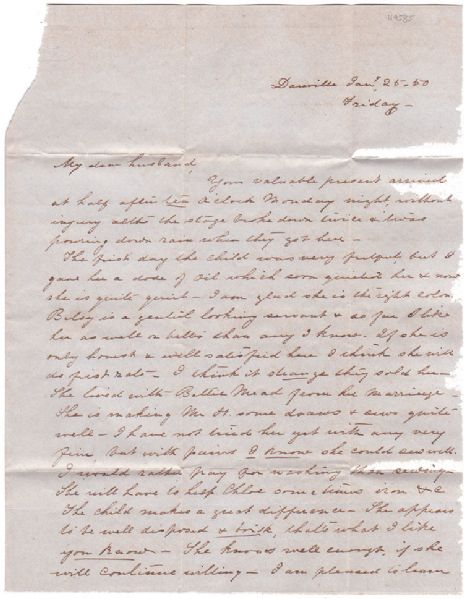 119585
Danville Jany 25-50
Friday -
My dear husband,
Your valuable present arrived
at half after ten O'clock Monday night, without
injury altho the stage broke down twice & twas
pouring down rain when they got here -
The first day the child was very but I
gave her a dose of Oil which soon quieted her & now
she is quite quiet - I am glad she is the right color
Betsy is a genteel looking servant & so far I like
her as well or better than any I know. If she is
only honest & well satisfied here I think she will
do first rate - I think it strange they sold her
She lived with Bettie Mead from her marriage -
She is making Mr H. some drawes & sews quite
well - I have not tried her yet with any very
fine but with pains I know she could sew well.
I would rather pay for washing than sewing
She will have to help Chloe sometimes iron &c
The child makes a great difference - She appears
to be well disposed & brisk, thats what I like
you know - She knows well enough, if she
will continue willing - I am pleased to learn